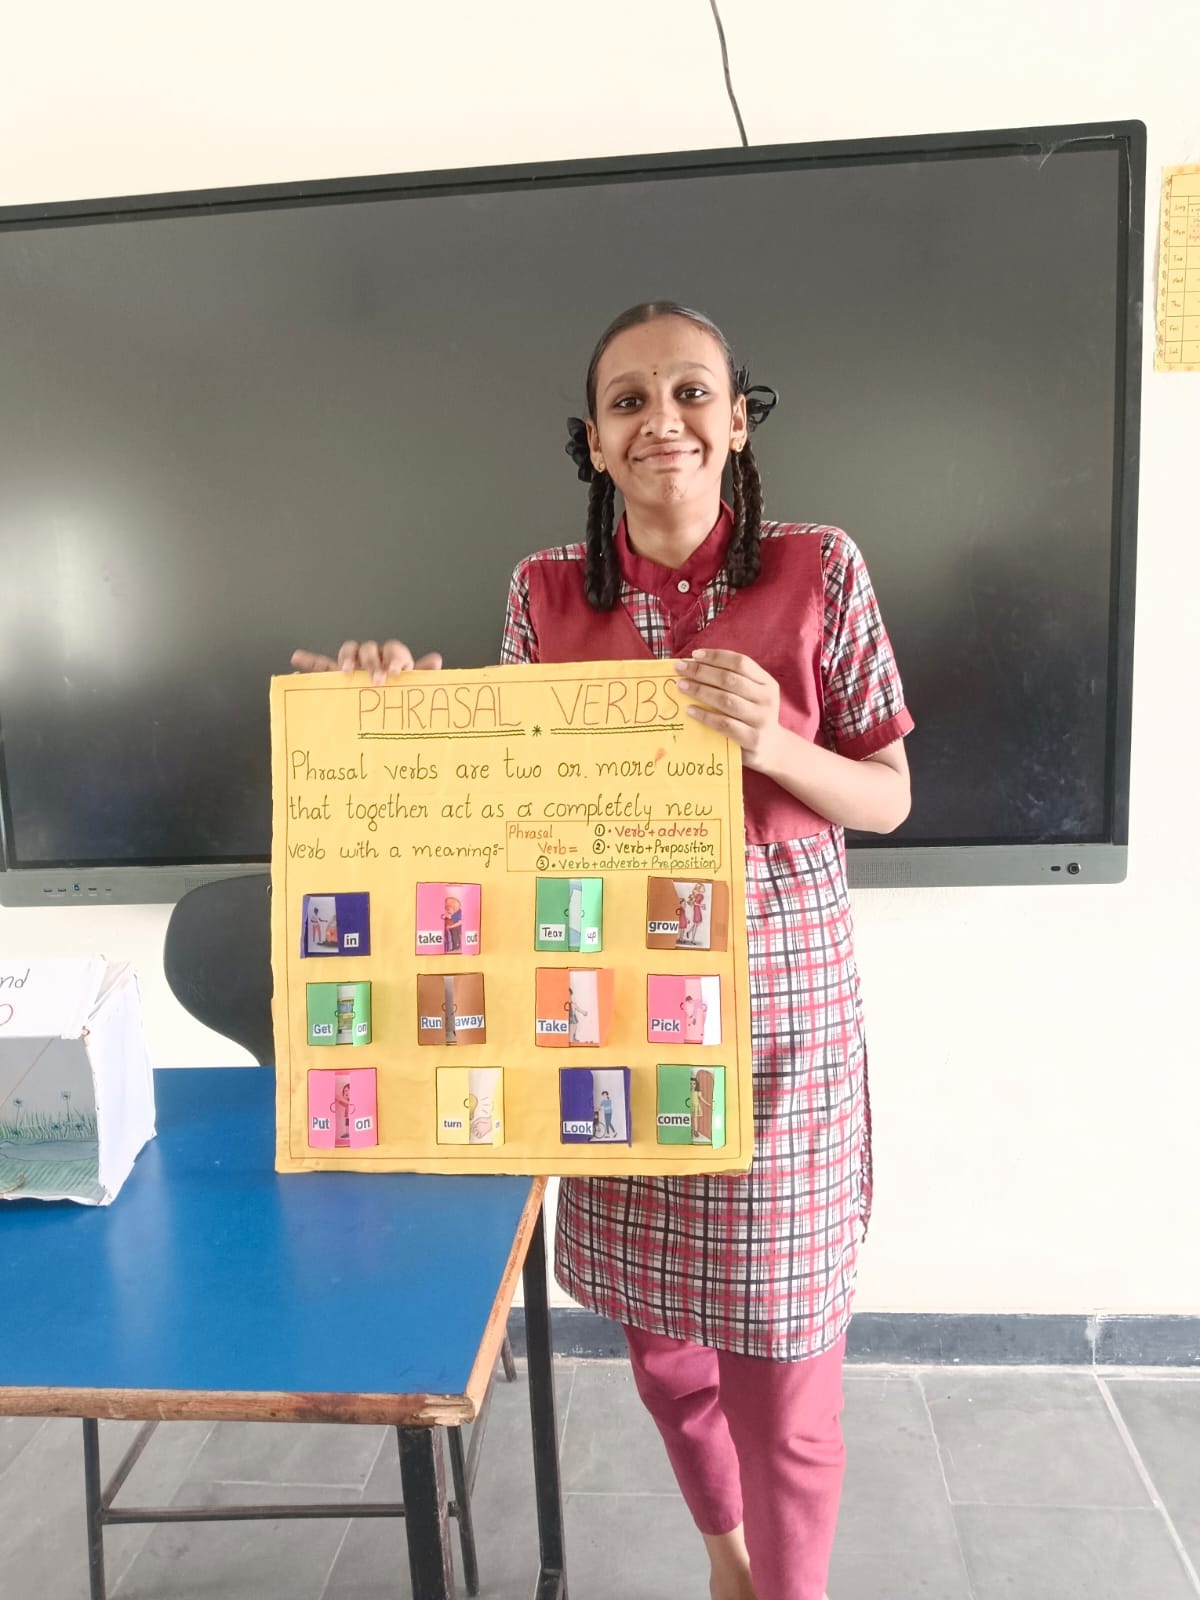 PHRASAL VERBS
Phrasal verbs are two or more words
that together act as a completely new
verb with a meaning:-
Phrasal Verb =
①. Verb+adverb
②. Verb+Preposition
③. Verb+adverb+Preposition
in
take out
Tear up
grow
Get on
Run away
Take
Pick
Put on
turn
Look
come
nd
Mon
Tue
Wed
Thu
Fri